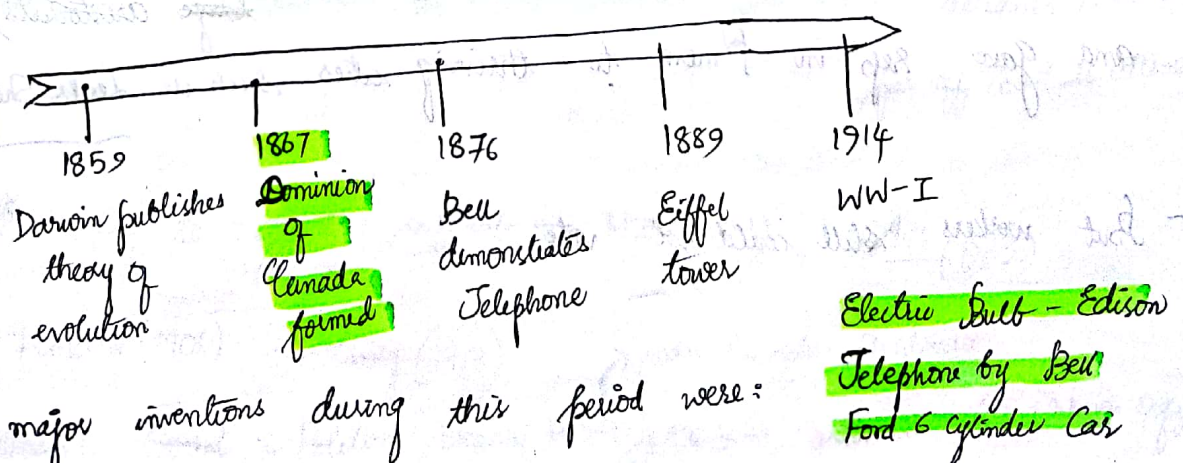 1859
Darwin publishes
theory of
evolution
1867
Dominion
of
Canada
formed
1876
Bell
demonstrates
Telephone
1889
Eiffel
tower
1914
WW-I
major inventions during this period were:
Electric Bulb - Edison
Telephone by Bell
Ford 6 cylinder Car